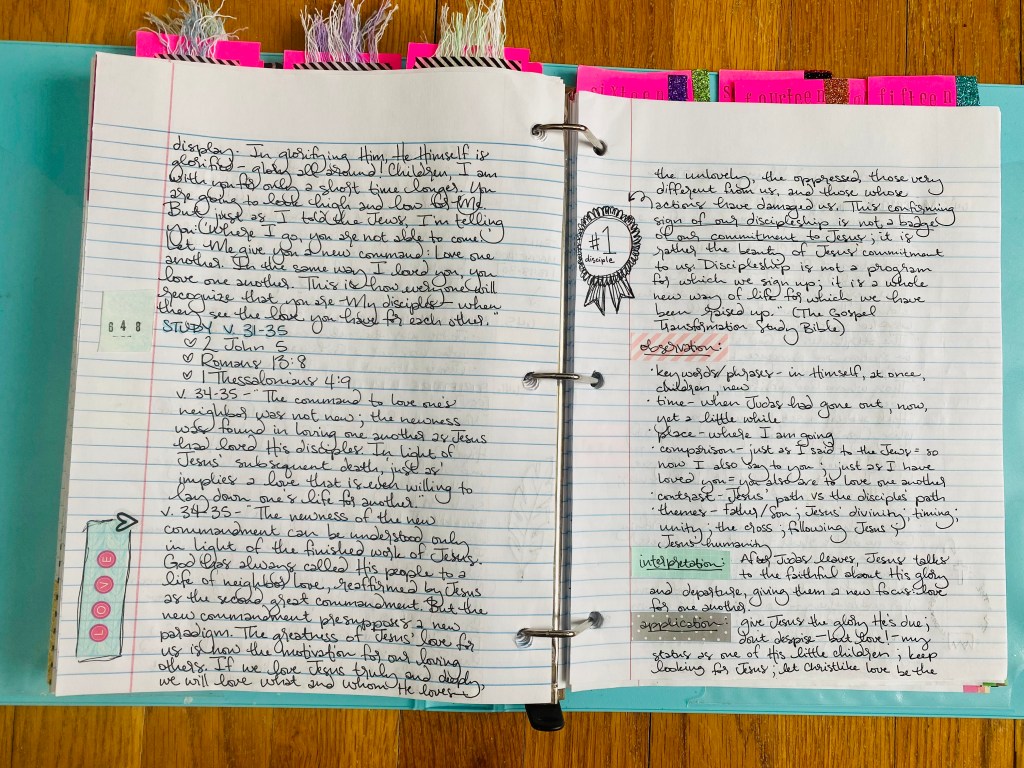 display. In glorifying Him, He Himself is
glorified - glory all around! Children, I am
with you for only a short time longer. You
are going to look high and low for Me.
But just as I told the Jews, I'm telling
you: 'Where I go, you are not able to come.'
Let Me give you a new command: Love one
another. In the same way I loved you, you
love one another. This is how everyone will
recognize that you are My disciples - when
they see the love you have for each other."
648
STUDY V. 31-35
♡ 2 John 5
♡ Romans 13:8
♡ 1 Thessalonians 4:9
v. 34-35 - "The command to love one's
neighbor was not new; the newness
was found in loving one another as Jesus
had loved His disciples. In light of
Jesus' subsequent death, 'just as'
implies a love that is even willing to
lay down one's life for another."
v. 34-35 - "The newness of the new
commandment can be understood only
in light of the finished work of Jesus.
God has always called His people to a
life of neighbor love, reaffirmed by Jesus
as the second great commandment. But the
new commandment presupposes a new
paradigm. The greatness of Jesus' love for
us is now the motivation for our loving
others. If we love Jesus truly and deeply,
we will love what and whom He loves -
LOVE
sixteen
fourteen
fifteen
the unlovely, the oppressed, those very
different from us, and those whose
actions have damaged us. This confirming
sign of our discipleship is not a badge
of our commitment to Jesus; it is
rather the beauty of Jesus' commitment
to us. Discipleship is not a program
for which we sign up; it is a whole
new way of life for which we have
been raised up." (The Gospel
Transformation Study Bible)
#1
disciple
observation:
· key words/phrases - in Himself, at once,
children, new
· time - when Judas had gone out, now,
yet a little while
· place - where I am going
· comparison - just as I said to the Jews = so
now I also say to you; just as I have
loved you = you also are to love one another
· contrast - Jesus' path vs the disciples' path
· themes - father/son; Jesus' divinity; timing;
unity; the cross; following Jesus;
Jesus' humanity
interpretation: After Judas leaves, Jesus talks
to the faithful about His glory
and departure, giving them a new focus: love
for one another.
application: give Jesus the glory He's due;
don't despise - but love! - my
status as one of His little children; keep
looking for Jesus; let Christlike love be the